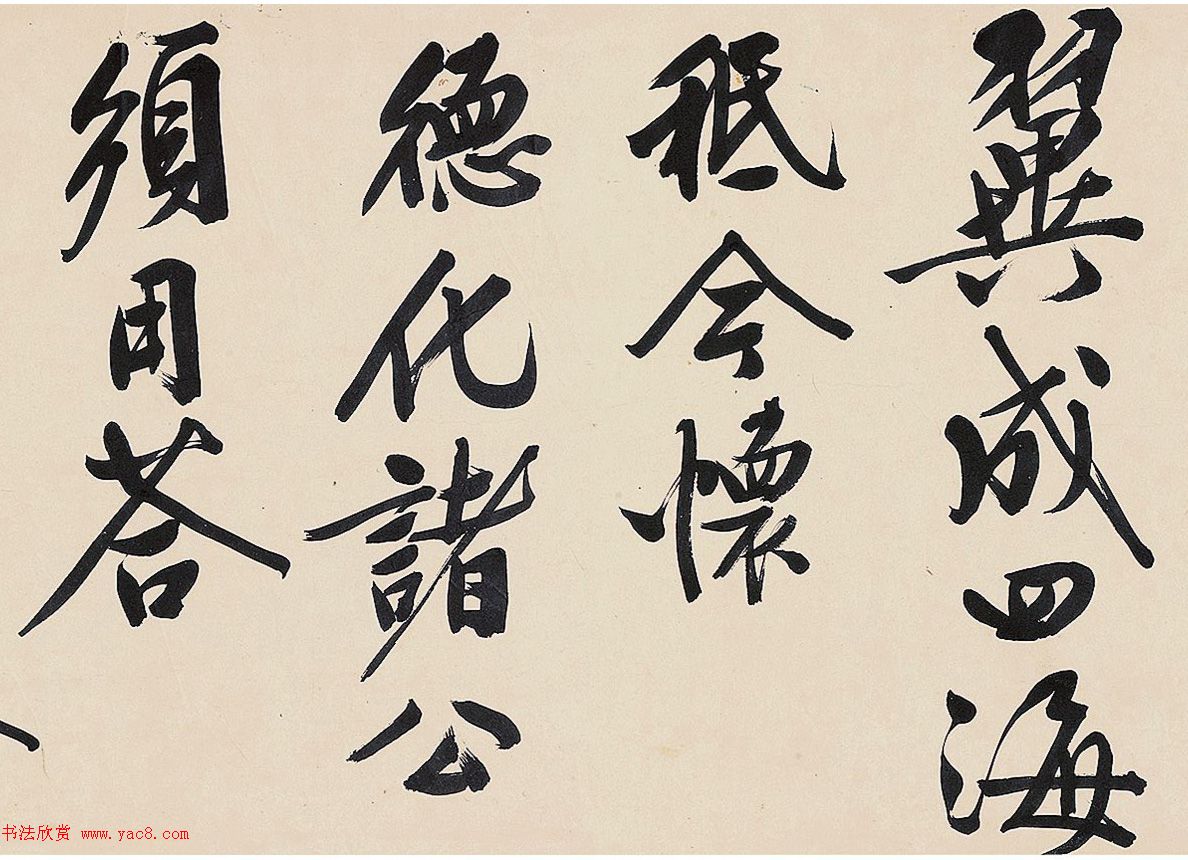 翼成四海
秪今懷
德化諸公
須用荅
书法欣赏 www.yac8.com